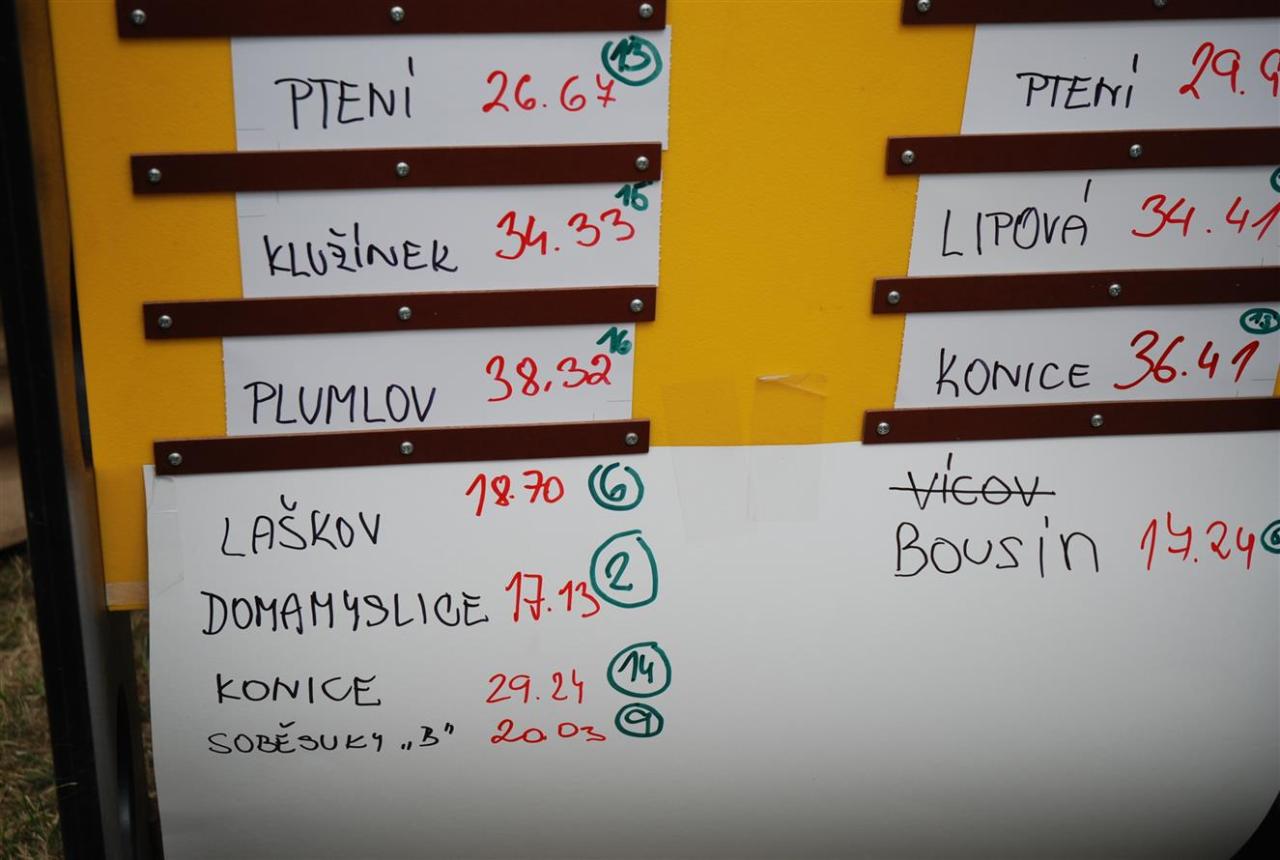 PTENÍ 26.67 13
KLUŽÍNEK 34.33 15
PLUMLOV 38.32 16
LAŠKOV 18.70 6
DOMAMYSLICE 17.13 2
KONICE 29.24 14
SOBĚSUKY „B" 20.03 9
PTENÍ 29.
LIPOVÁ 34.41
KONICE 36.41 13
VÍCOV
BOUSíN 17.24